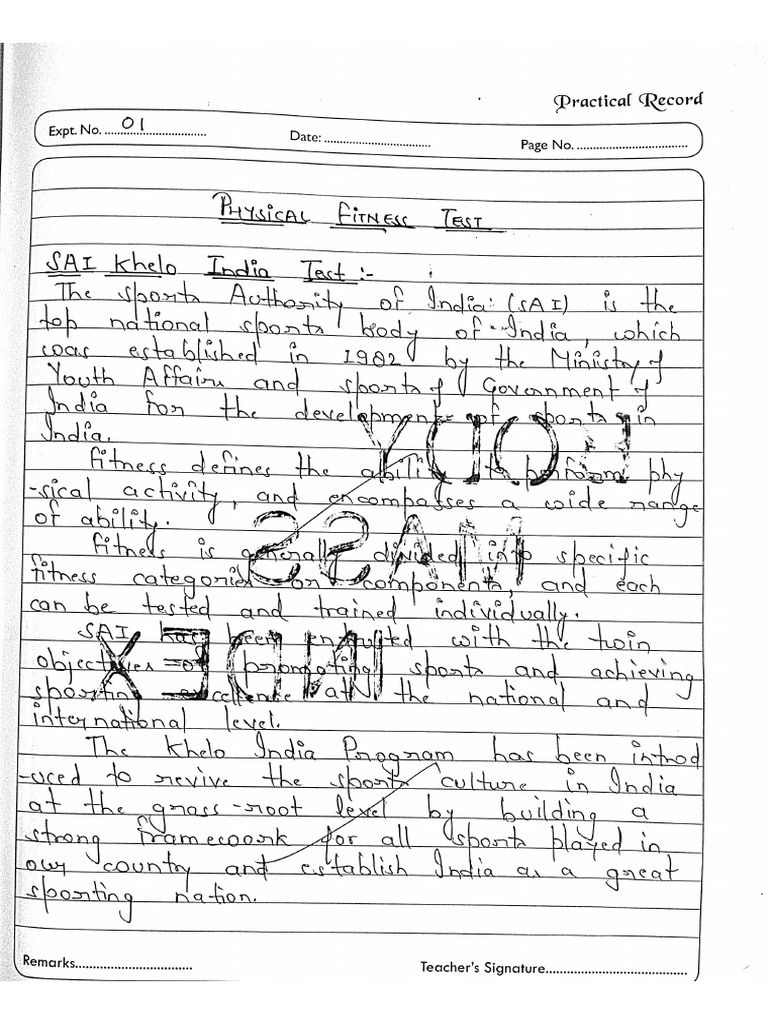 Practical Record
Expt. No. 01 Date: Page No.
PHYSICAL FITNESS TEST
SAI Khelo India Test :-
The sports Authority of India (SAI) is the
top national sports body of India, which
was established in 1982 by the Ministry of
Youth Affairs and sports of Government of
India for the development of sports in
India.
fitness defines the ability to perform phy
-sical activity, and encompasses a wide range
of ability.
fitness is generally divided into specific
fitness categories or components, and each
can be tested and trained individually.
SAI has been entrusted with the twin
objectives of promoting sports and achieving
sporting excellence at the national and
international level.
The Khelo India Program has been introd
-uced to revive the sports culture in India
at the grass-root level by building a
strong framework for all sports played in
our country and establish India as a great
sporting nation.
BODY
MASS
INDEX
Remarks Teacher's Signature